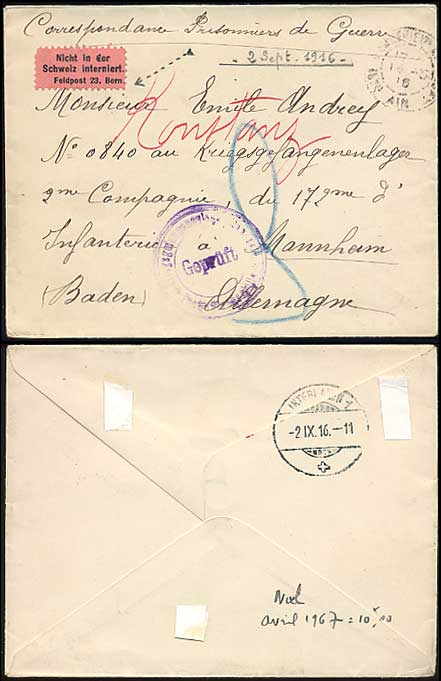 Correspondance Prisonniers de Guerre
Nicht in der
Schweiz interniert.
Feldpost 23, Bern.
- 2 Sept. 1916 -
16
AIN
Monsieur Emile Andrey
Konstanz
N° 0840 au Kriegsgefangenenlager
2me Compagnie, du 172me d'
Infanterie à Mannheim
Geprüft
(Baden) Allemagne
INTERLAKEN 1
-2.IX.16.-11
Noël
avril 1967 = 10,00